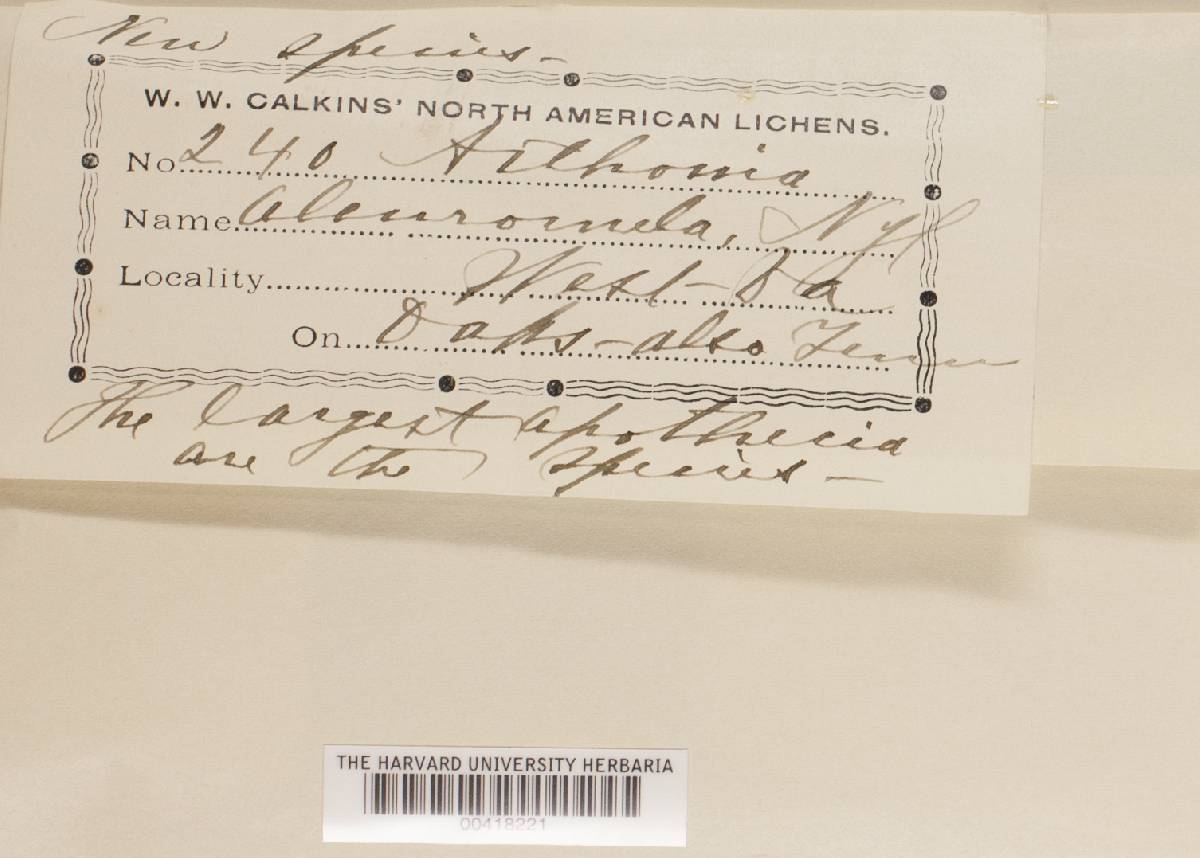 New species-
W. W. CALKINS' NORTH AMERICAN LICHENS.
No. 240 Arthonia
Name aleuromela, Nyl
Locality West-Va
On Oaks-also Tenn
The largest apothecia
are the species-
THE HARVARD UNIVERSITY HERBARIA
00418221